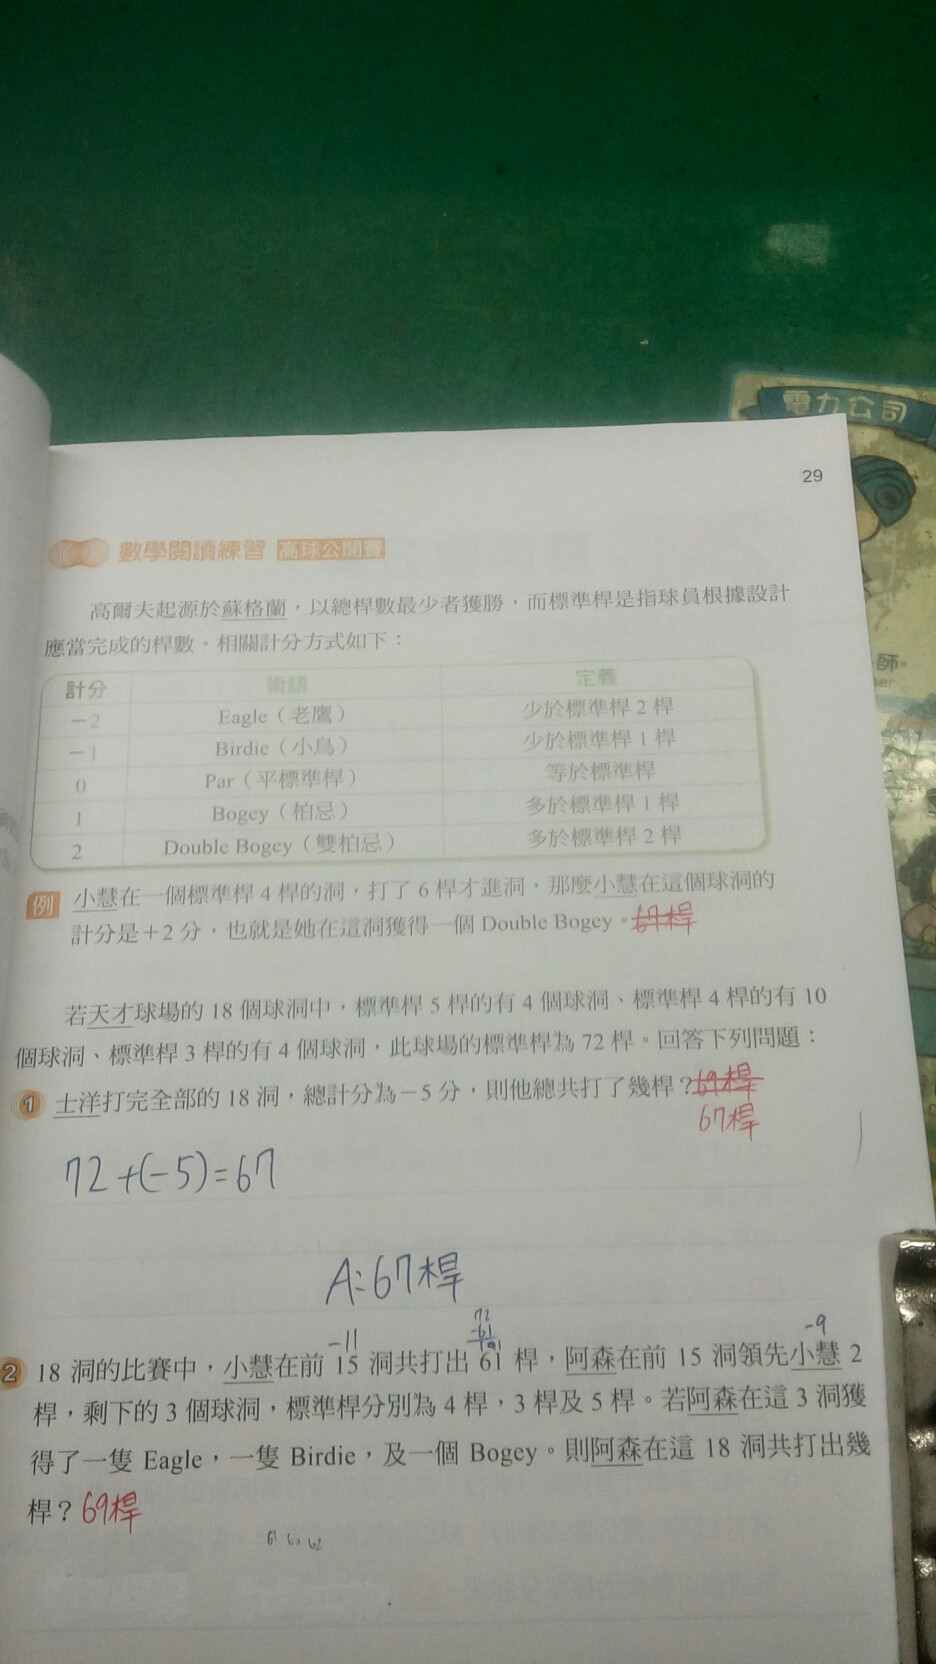 電力公司
29
師。
數學閱讀練習 高球公開賽
高爾夫起源於蘇格蘭，以總桿數最少者獲勝，而標準桿是指球員根據設計
應當完成的桿數。相關計分方式如下：
計分 術語 定義
－2 Eagle（老鷹） 少於標準桿 2 桿
－1 Birdie（小鳥） 少於標準桿 1 桿
0 Par（平標準桿） 等於標準桿
1 Bogey（柏忌） 多於標準桿 1 桿
2 Double Bogey（雙柏忌） 多於標準桿 2 桿
例 小慧在一個標準桿 4 桿的洞，打了 6 桿才進洞，那麼小慧在這個球洞的
計分是＋2 分，也就是她在這洞獲得一個 Double Bogey。
若天才球場的 18 個球洞中，標準桿 5 桿的有 4 個球洞、標準桿 4 桿的有 10
個球洞、標準桿 3 桿的有 4 個球洞，此球場的標準桿為 72 桿。回答下列問題：
1 士洋打完全部的 18 洞，總計分為－5 分，則他總共打了幾桿？69桿
67桿
72+(-5)=67
A:67桿
-11 72 -9
-61
2 18 洞的比賽中，小慧在前 15 洞共打出 61 桿，阿森在前 15 洞領先小慧 2
桿，剩下的 3 個球洞，標準桿分別為 4 桿，3 桿及 5 桿。若阿森在這 3 洞獲
得了一隻 Eagle，一隻 Birdie，及一個 Bogey。則阿森在這 18 洞共打出幾
桿？69桿
61 60 62